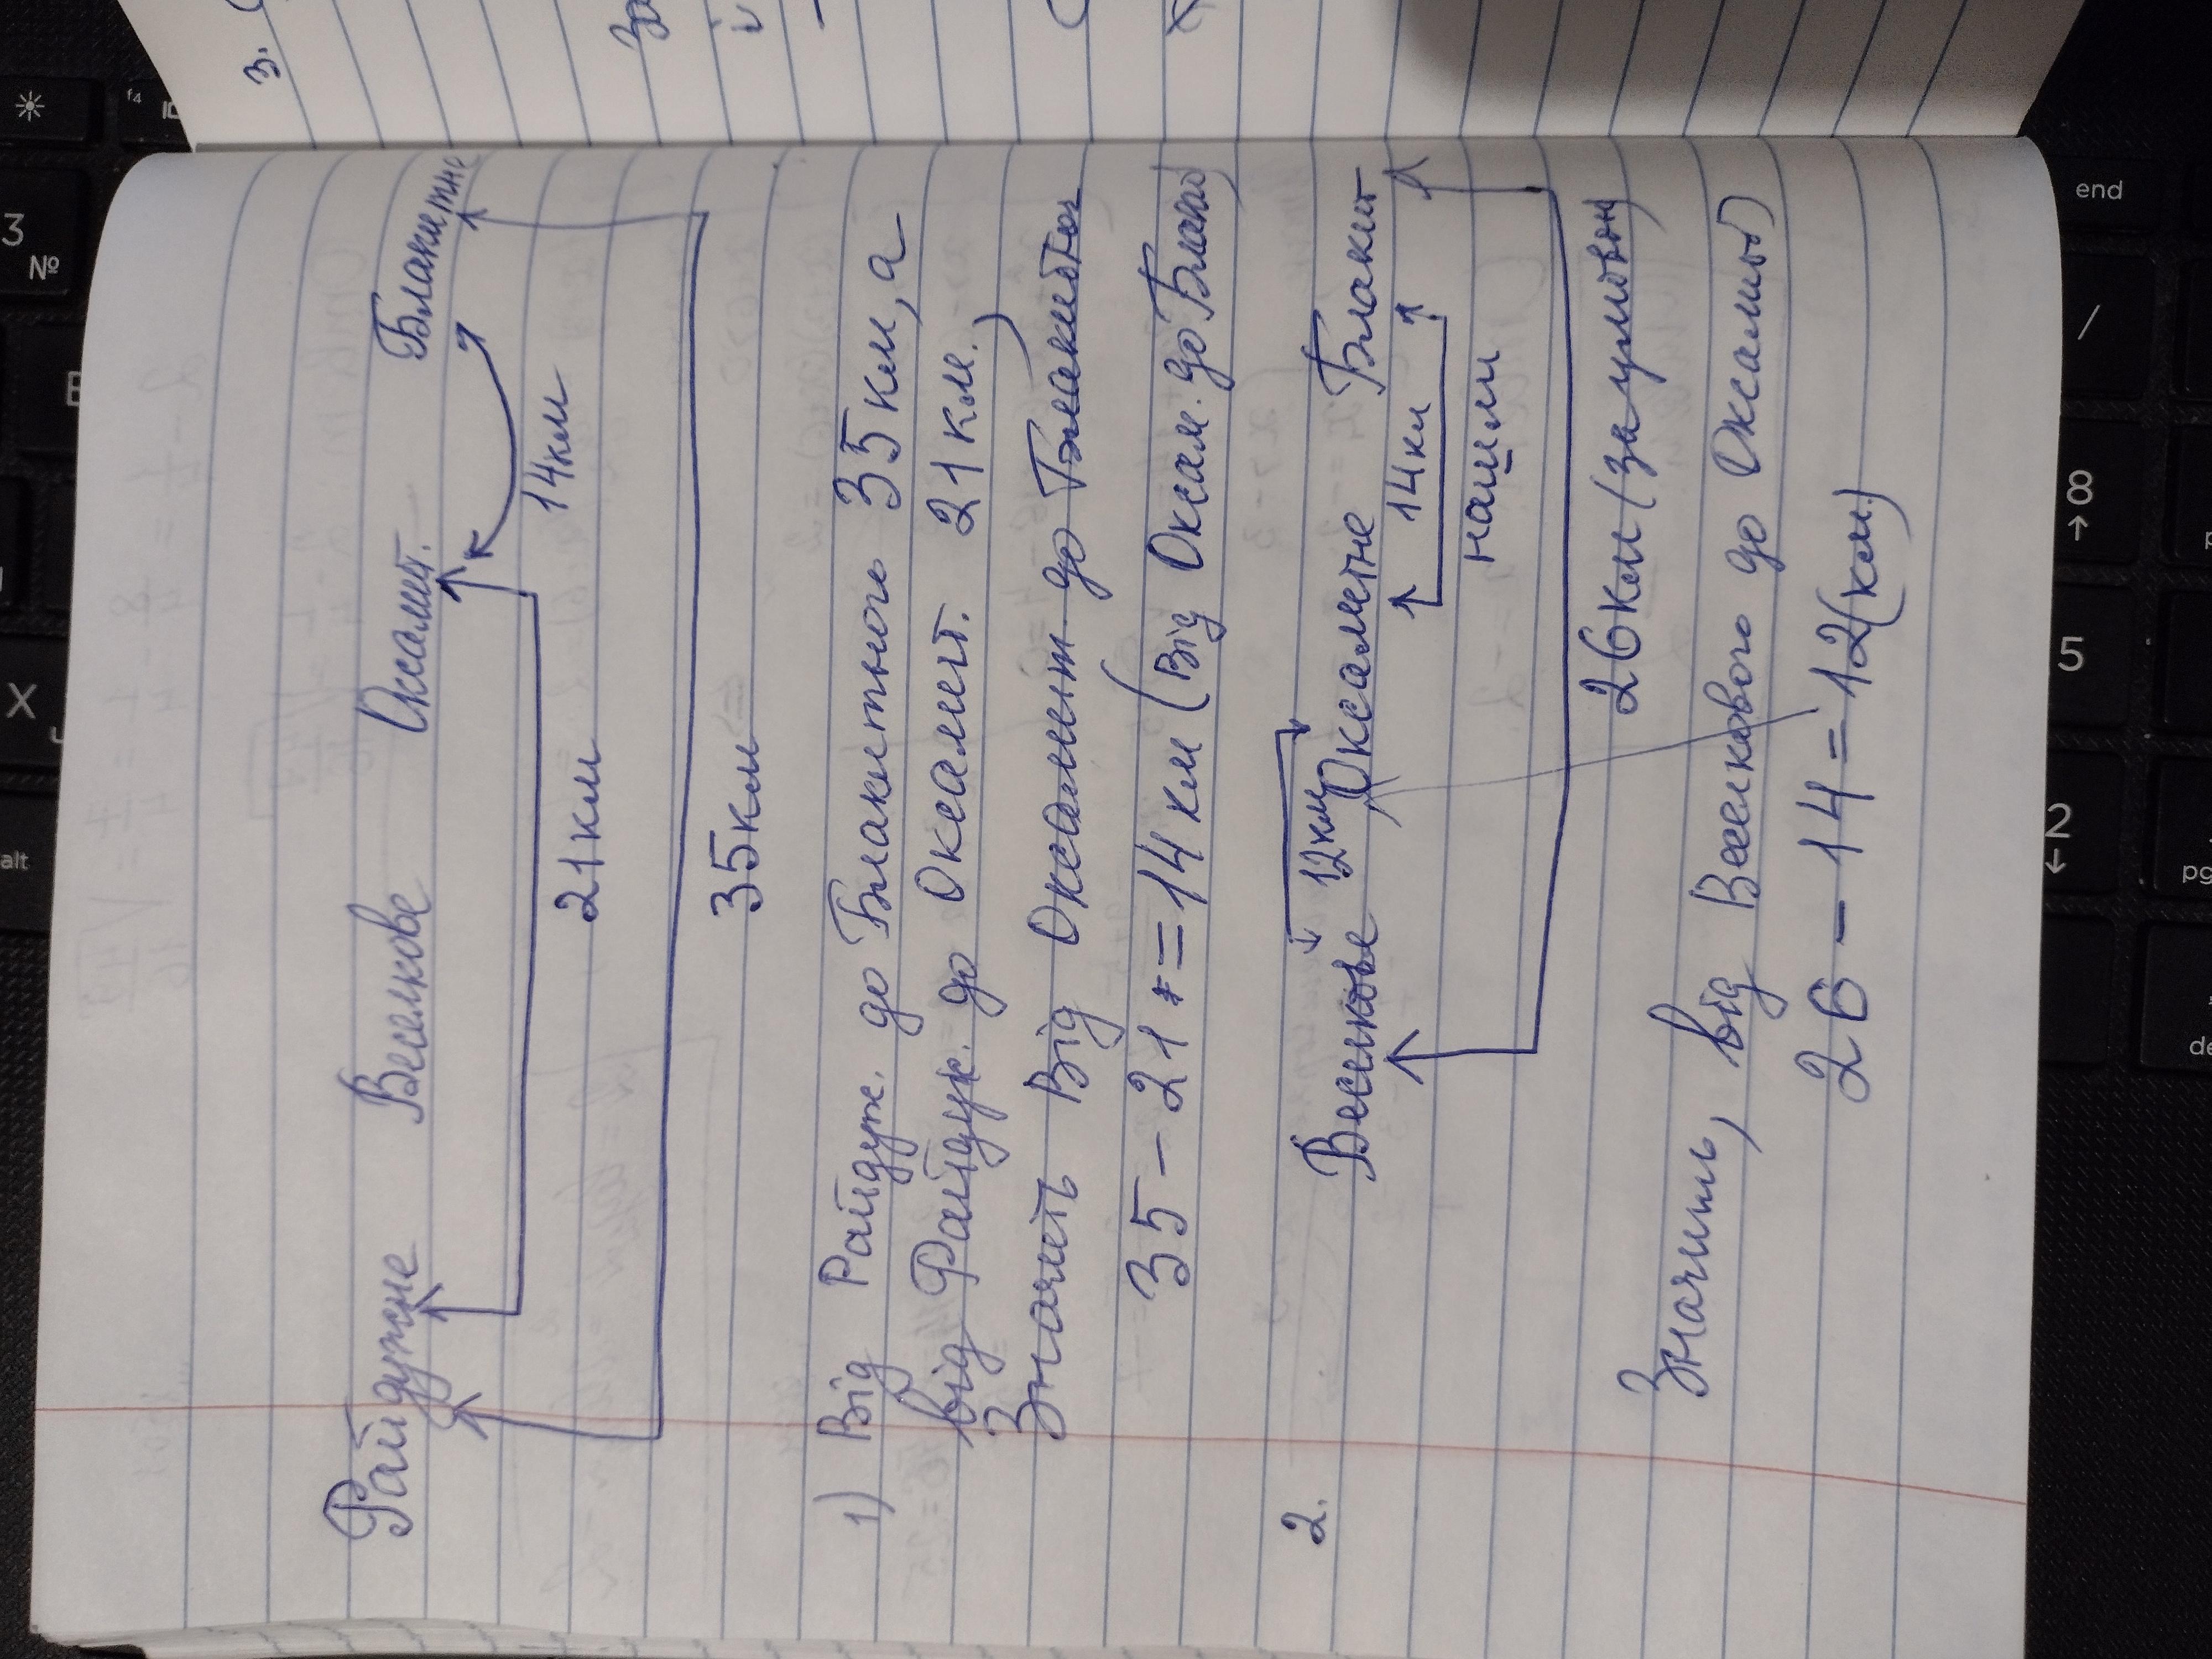 Райдужне Веселкове Оксамит. Блакитне
14км
21км
35км
1) Від Райдуж. до Блакитного 35 км, а
від Райдуж. до Оксамит. 21 км.
Значить Від Оксамит до Блакитног
35 - 21 = 14 км (Від Оксам. до Блакит)
2. Веселкове 12км Оксаметне Блакит
14км
нашли
26км (за умовою)
Значить, від Веселкового до Оксамит)
26 - 14 = 12(км)
3.